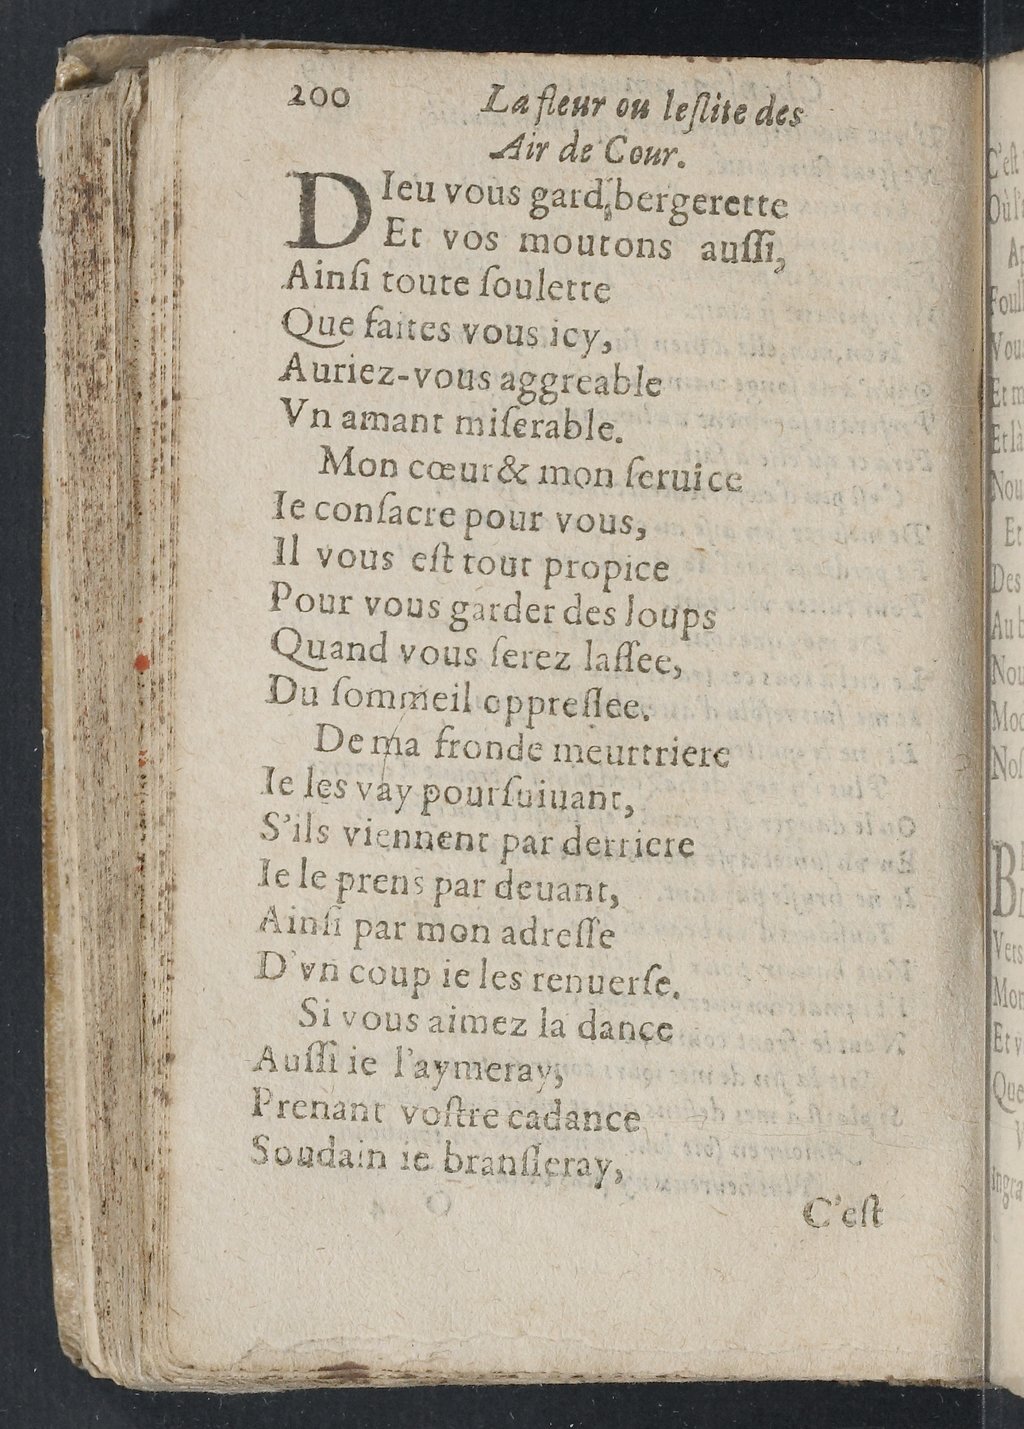 200 La fleur ou leſlite des
Air de Cour.
DIeu vous gard, bergerette
Et vos moutons auſſi,
Ainſi toute ſoulette
Que faites vous icy,
Auriez-vous aggreable
Vn amant miſerable.
Mon cœur & mon ſeruice
Ie conſacre pour vous,
Il vous eſt tout propice
Pour vous garder des loups
Quand vous ſerez laſſee,
Du ſommeil oppreſſee.
De ma fronde meurtriere
Ie les vay pourſuiuant,
S'ils viennent par derriere
Ie le prens par deuant,
Ainſi par mon adreſſe
D'vn coup ie les renuerſe.
Si vous aimez la dance
Auſſi ie l'aymeray,
Prenant voſtre cadance
Soudain ie branſleray,
C'eſt